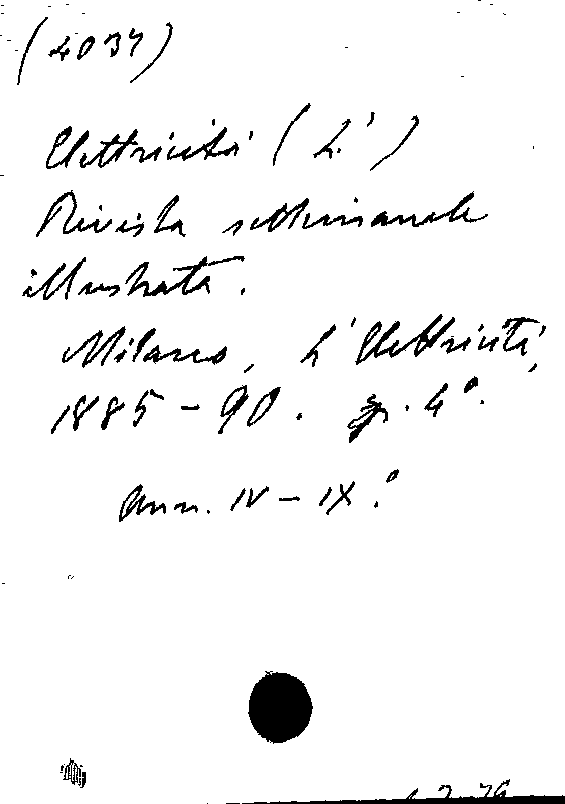 (4034)
Elettricità (L')
Rivista settimanale
illustrata.
Milano, L'Elettricità,
1885-90. gr. 4°.
Ann. IV-IX.°